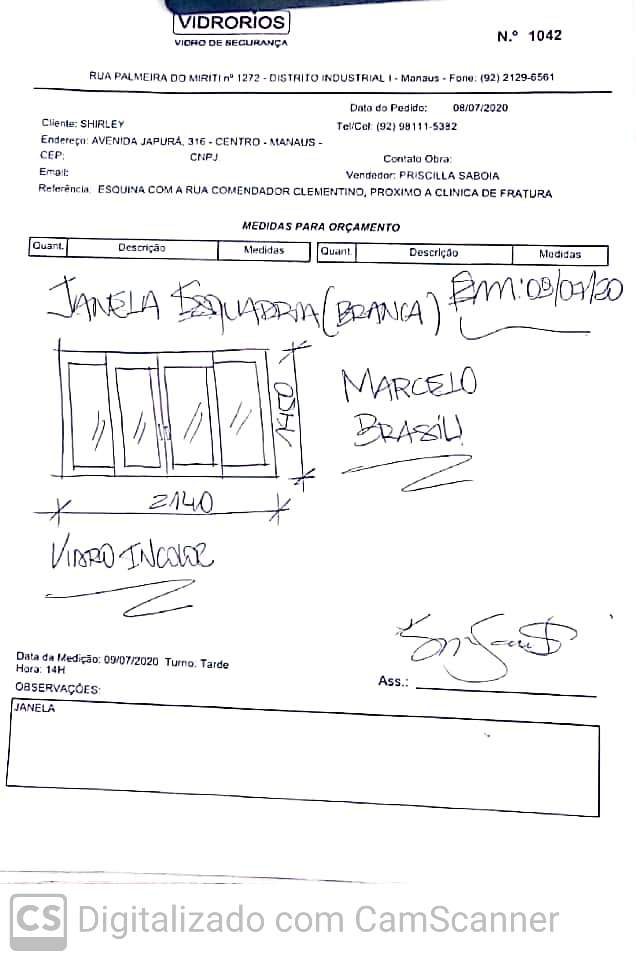 VIDRORIOS
VIDRO DE SEGURANÇA
N.º 1042
RUA PALMEIRA DO MIRITI nº 1272 - DISTRITO INDUSTRIAL I - Manaus - Fone: (92) 2129-6561
Data do Pedido: 08/07/2020
Cliente: SHIRLEY
Tel/Cel: (92) 98111-5382
Endereço: AVENIDA JAPURÁ, 316 - CENTRO - MANAUS -
CEP: CNPJ
Contato Obra:
Email:
Vendedor: PRISCILLA SABOIA
Referência: ESQUINA COM A RUA COMENDADOR CLEMENTINO, PROXIMO A CLINICA DE FRATURA
MEDIDAS PARA ORÇAMENTO
Quant. Descrição Medidas Quant. Descrição Medidas
JANELA ESQUADRIA (BRANCA) EM: 09/07/20
1400
MARCELO
BRASIL
2140
VIDRO INCOLOR
Data da Medição: 09/07/2020 Turno. Tarde
Hora: 14H
Ass.:
OBSERVAÇÕES:
JANELA
CS Digitalizado com CamScanner